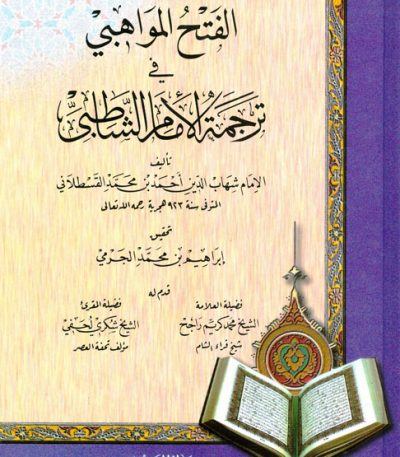 الفتح المواهبي
في
ترجمة الإمام الشاطبي
تأليف
الإمام شهاب الدين أحمد بن محمد القسطلاني
المتوفى سنة ٩٢٣ هجرية رحمه الله تعالى
تحقيق
إبراهيم بن محمد الجرمي
قدم له
فضيلة العلامة
الشيخ محمد كريم راجح
شيخ قراء الشام
فضيلة المقرئ
الشيخ شكري لحفي
مؤلف تحفة العصر